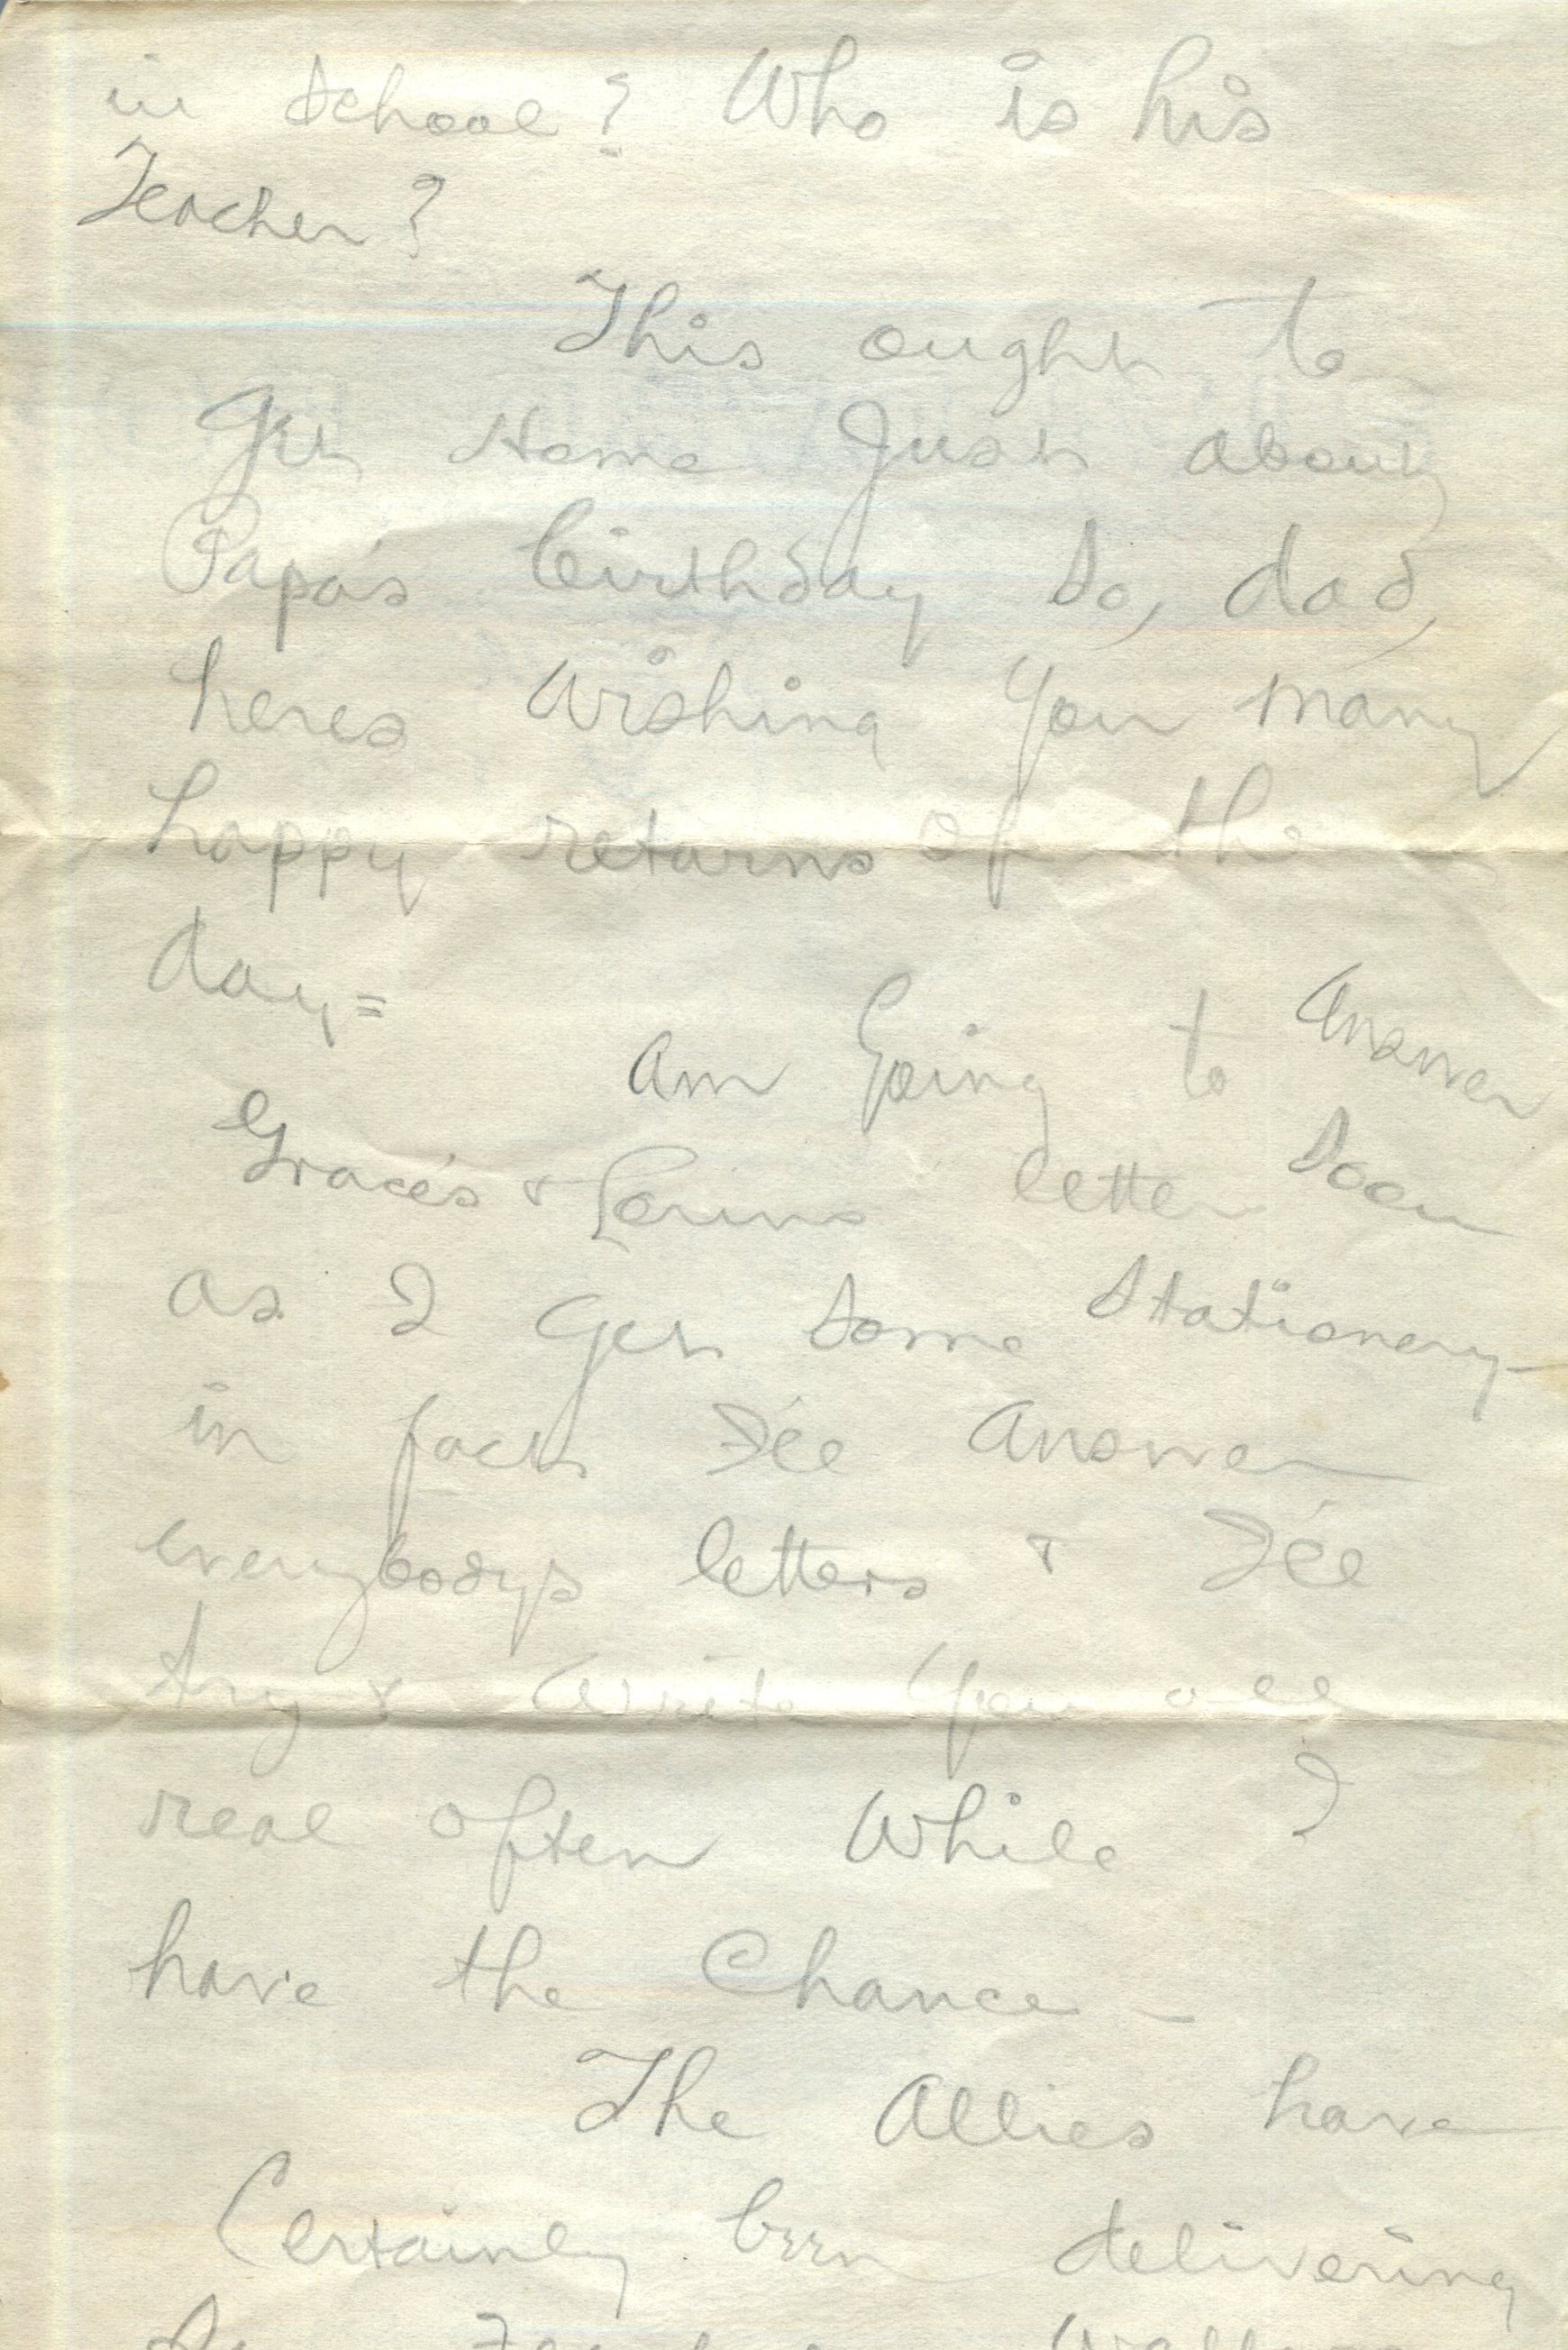 in school? Who is his
Teacher?
This ought to
Get Home Just about
Papa's birthday So, dad,
heres wishing you many
happy returns of the
day =
Am Going to Answer
Grace's & Lorins letter Soon
as I Get Some Stationery -
in fact I'll Answer
everybodys letters & I'll
try & Write you all
real often While I
have the Chance -
The Allies have
Certainly been delivering